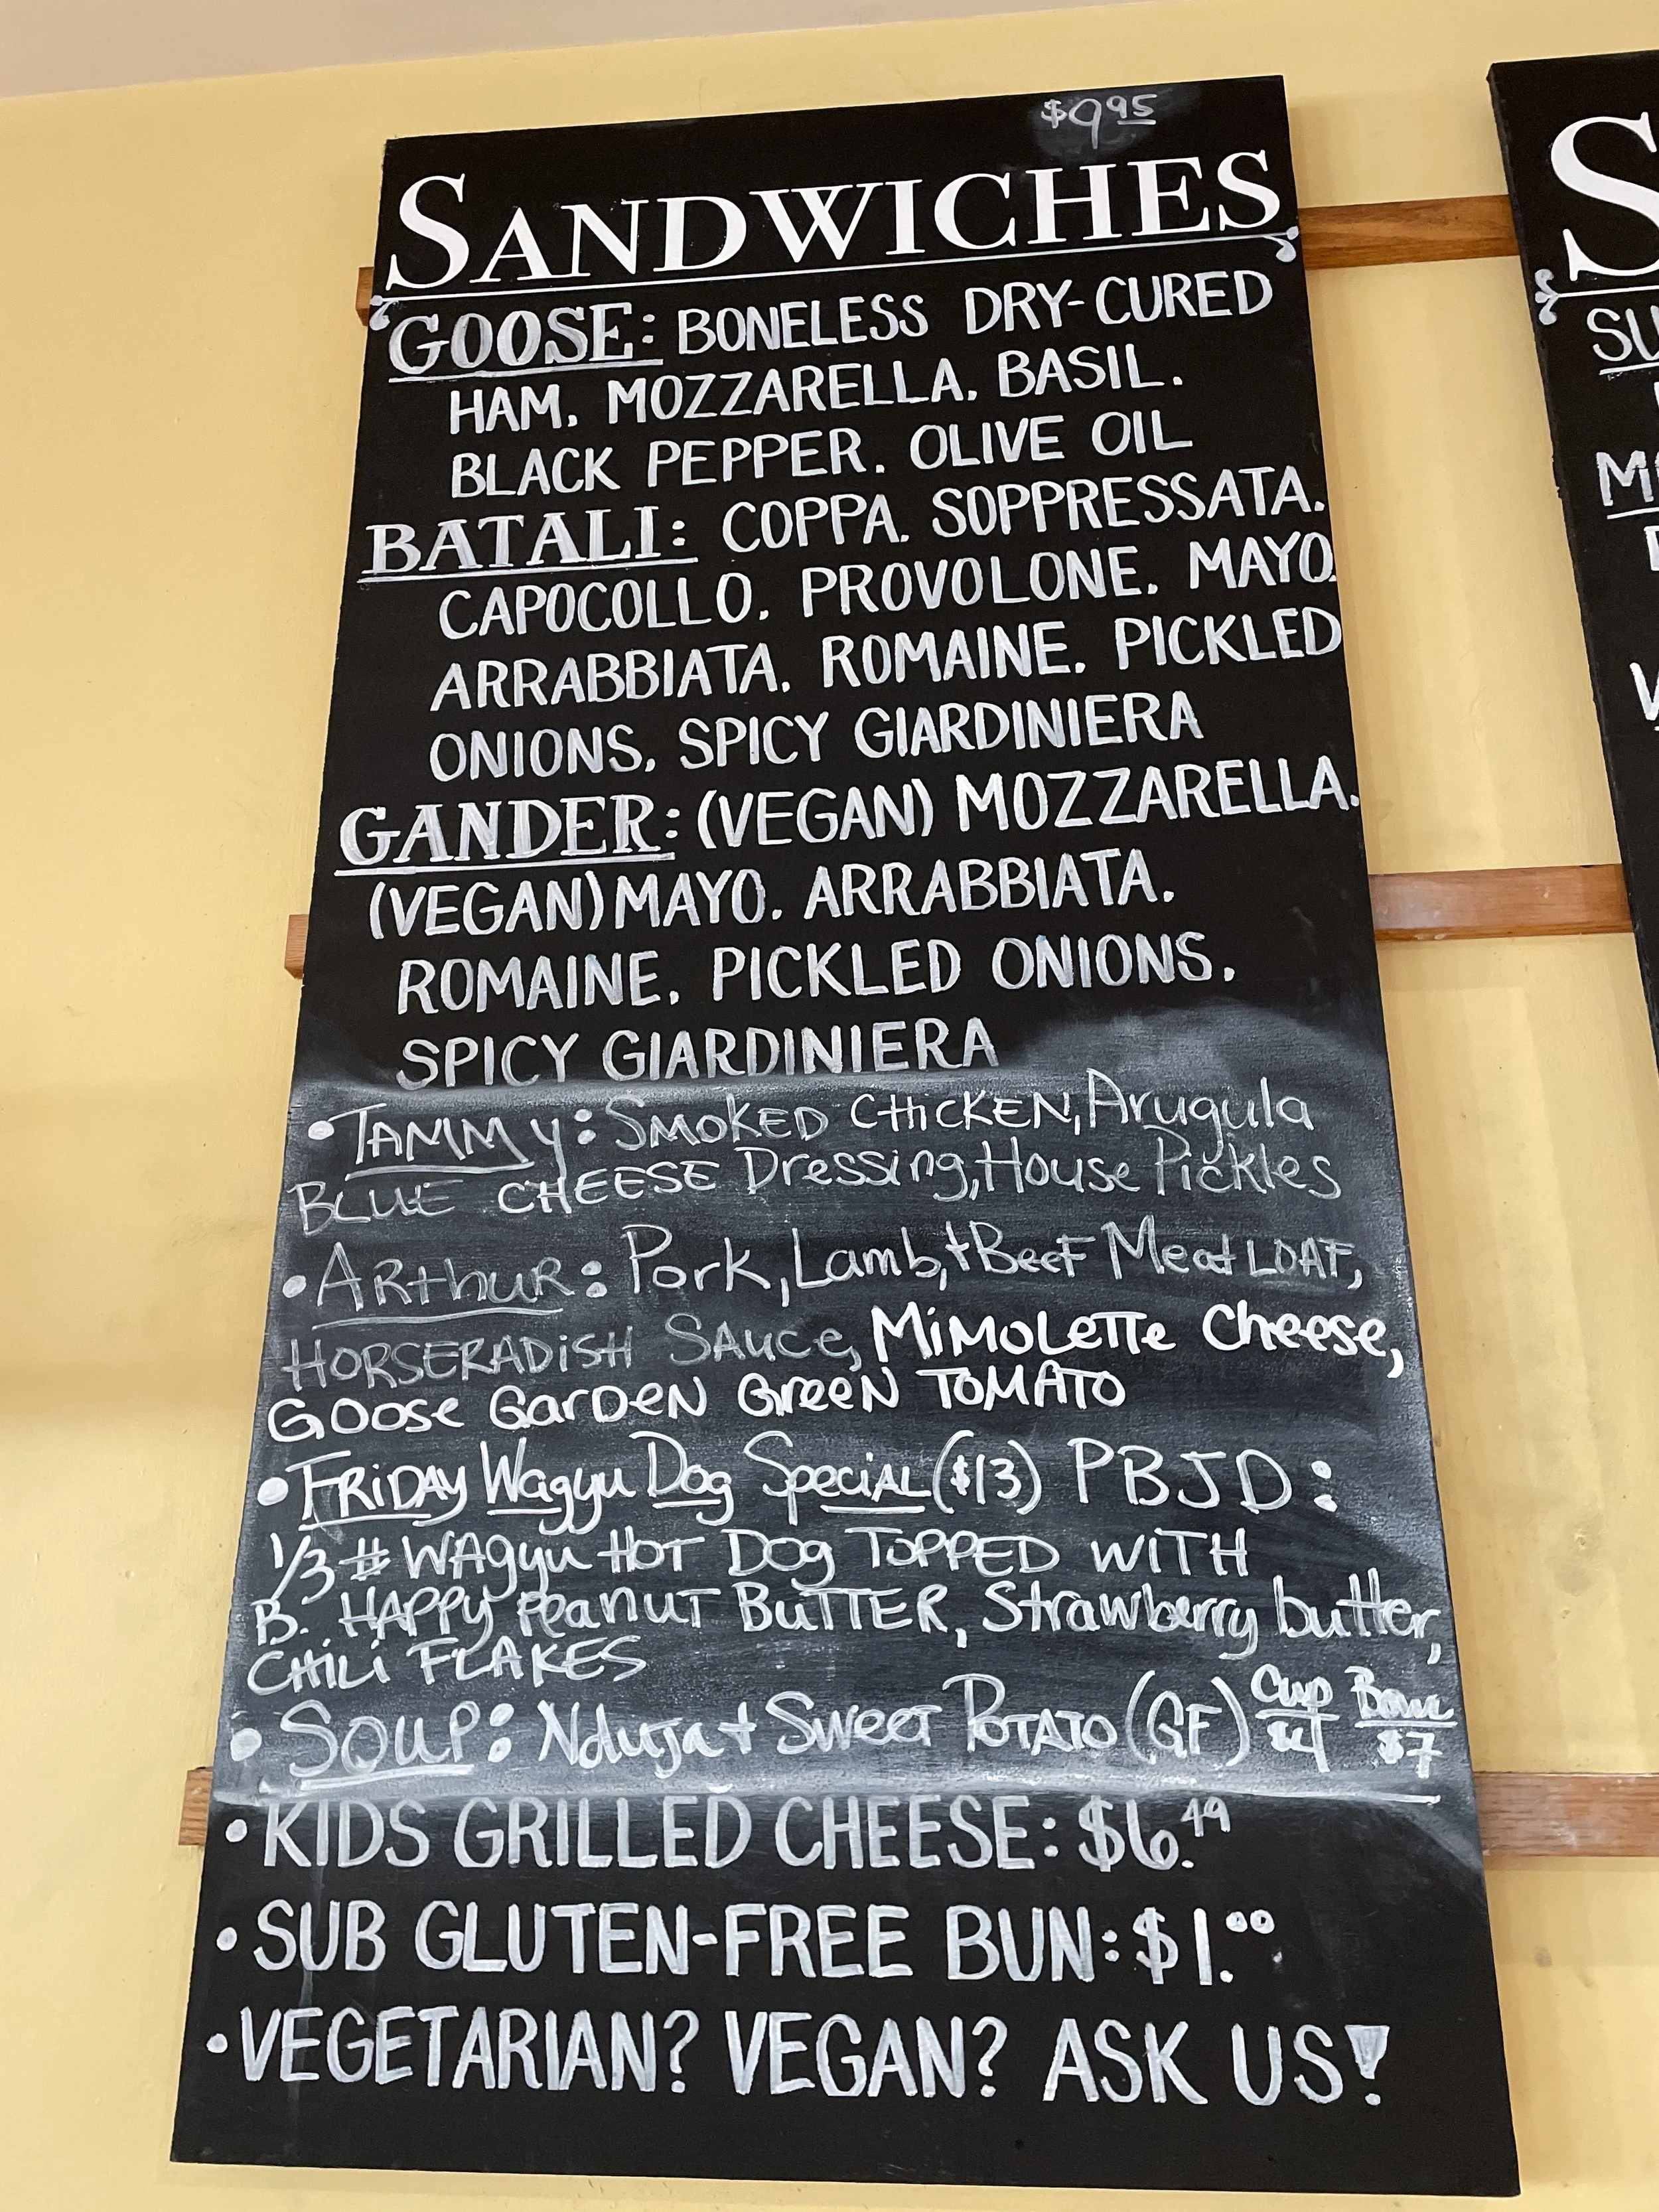 $9.95
SANDWICHES
GOOSE: BONELESS DRY-CURED
HAM, MOZZARELLA, BASIL,
BLACK PEPPER, OLIVE OIL
BATALI: COPPA, SOPPRESSATA,
CAPOCOLLO, PROVOLONE, MAYO,
ARRABBIATA, ROMAINE, PICKLED
ONIONS, SPICY GIARDINIERA
GANDER: (VEGAN) MOZZARELLA,
(VEGAN) MAYO, ARRABBIATA,
ROMAINE, PICKLED ONIONS,
SPICY GIARDINIERA
• TAMMY: SMOKED CHICKEN, Arugula
BLUE CHEESE Dressing, House Pickles
• ARthuR: Pork, Lamb, + Beef Meat LOAF,
HORSERADiSH SAuce, MiMOLeTTe Cheese,
GOOse GarDeN GreeN TOMATO
• FRiDAY Wagyu Dog SpeciAL ($13) PBJD:
1/3 # WAgyu HOT Dog TOPPED WiTH
B. HAPPy PeanuT BuTTER, Strawberry butter,
CHiLi FLAKES
• SOuP: Nduja + Sweet POTATO (GF) Cup $4 Bowl $7
• KIDS GRILLED CHEESE: $6.49
• SUB GLUTEN-FREE BUN: $1.00
• VEGETARIAN? VEGAN? ASK US!
S
SU